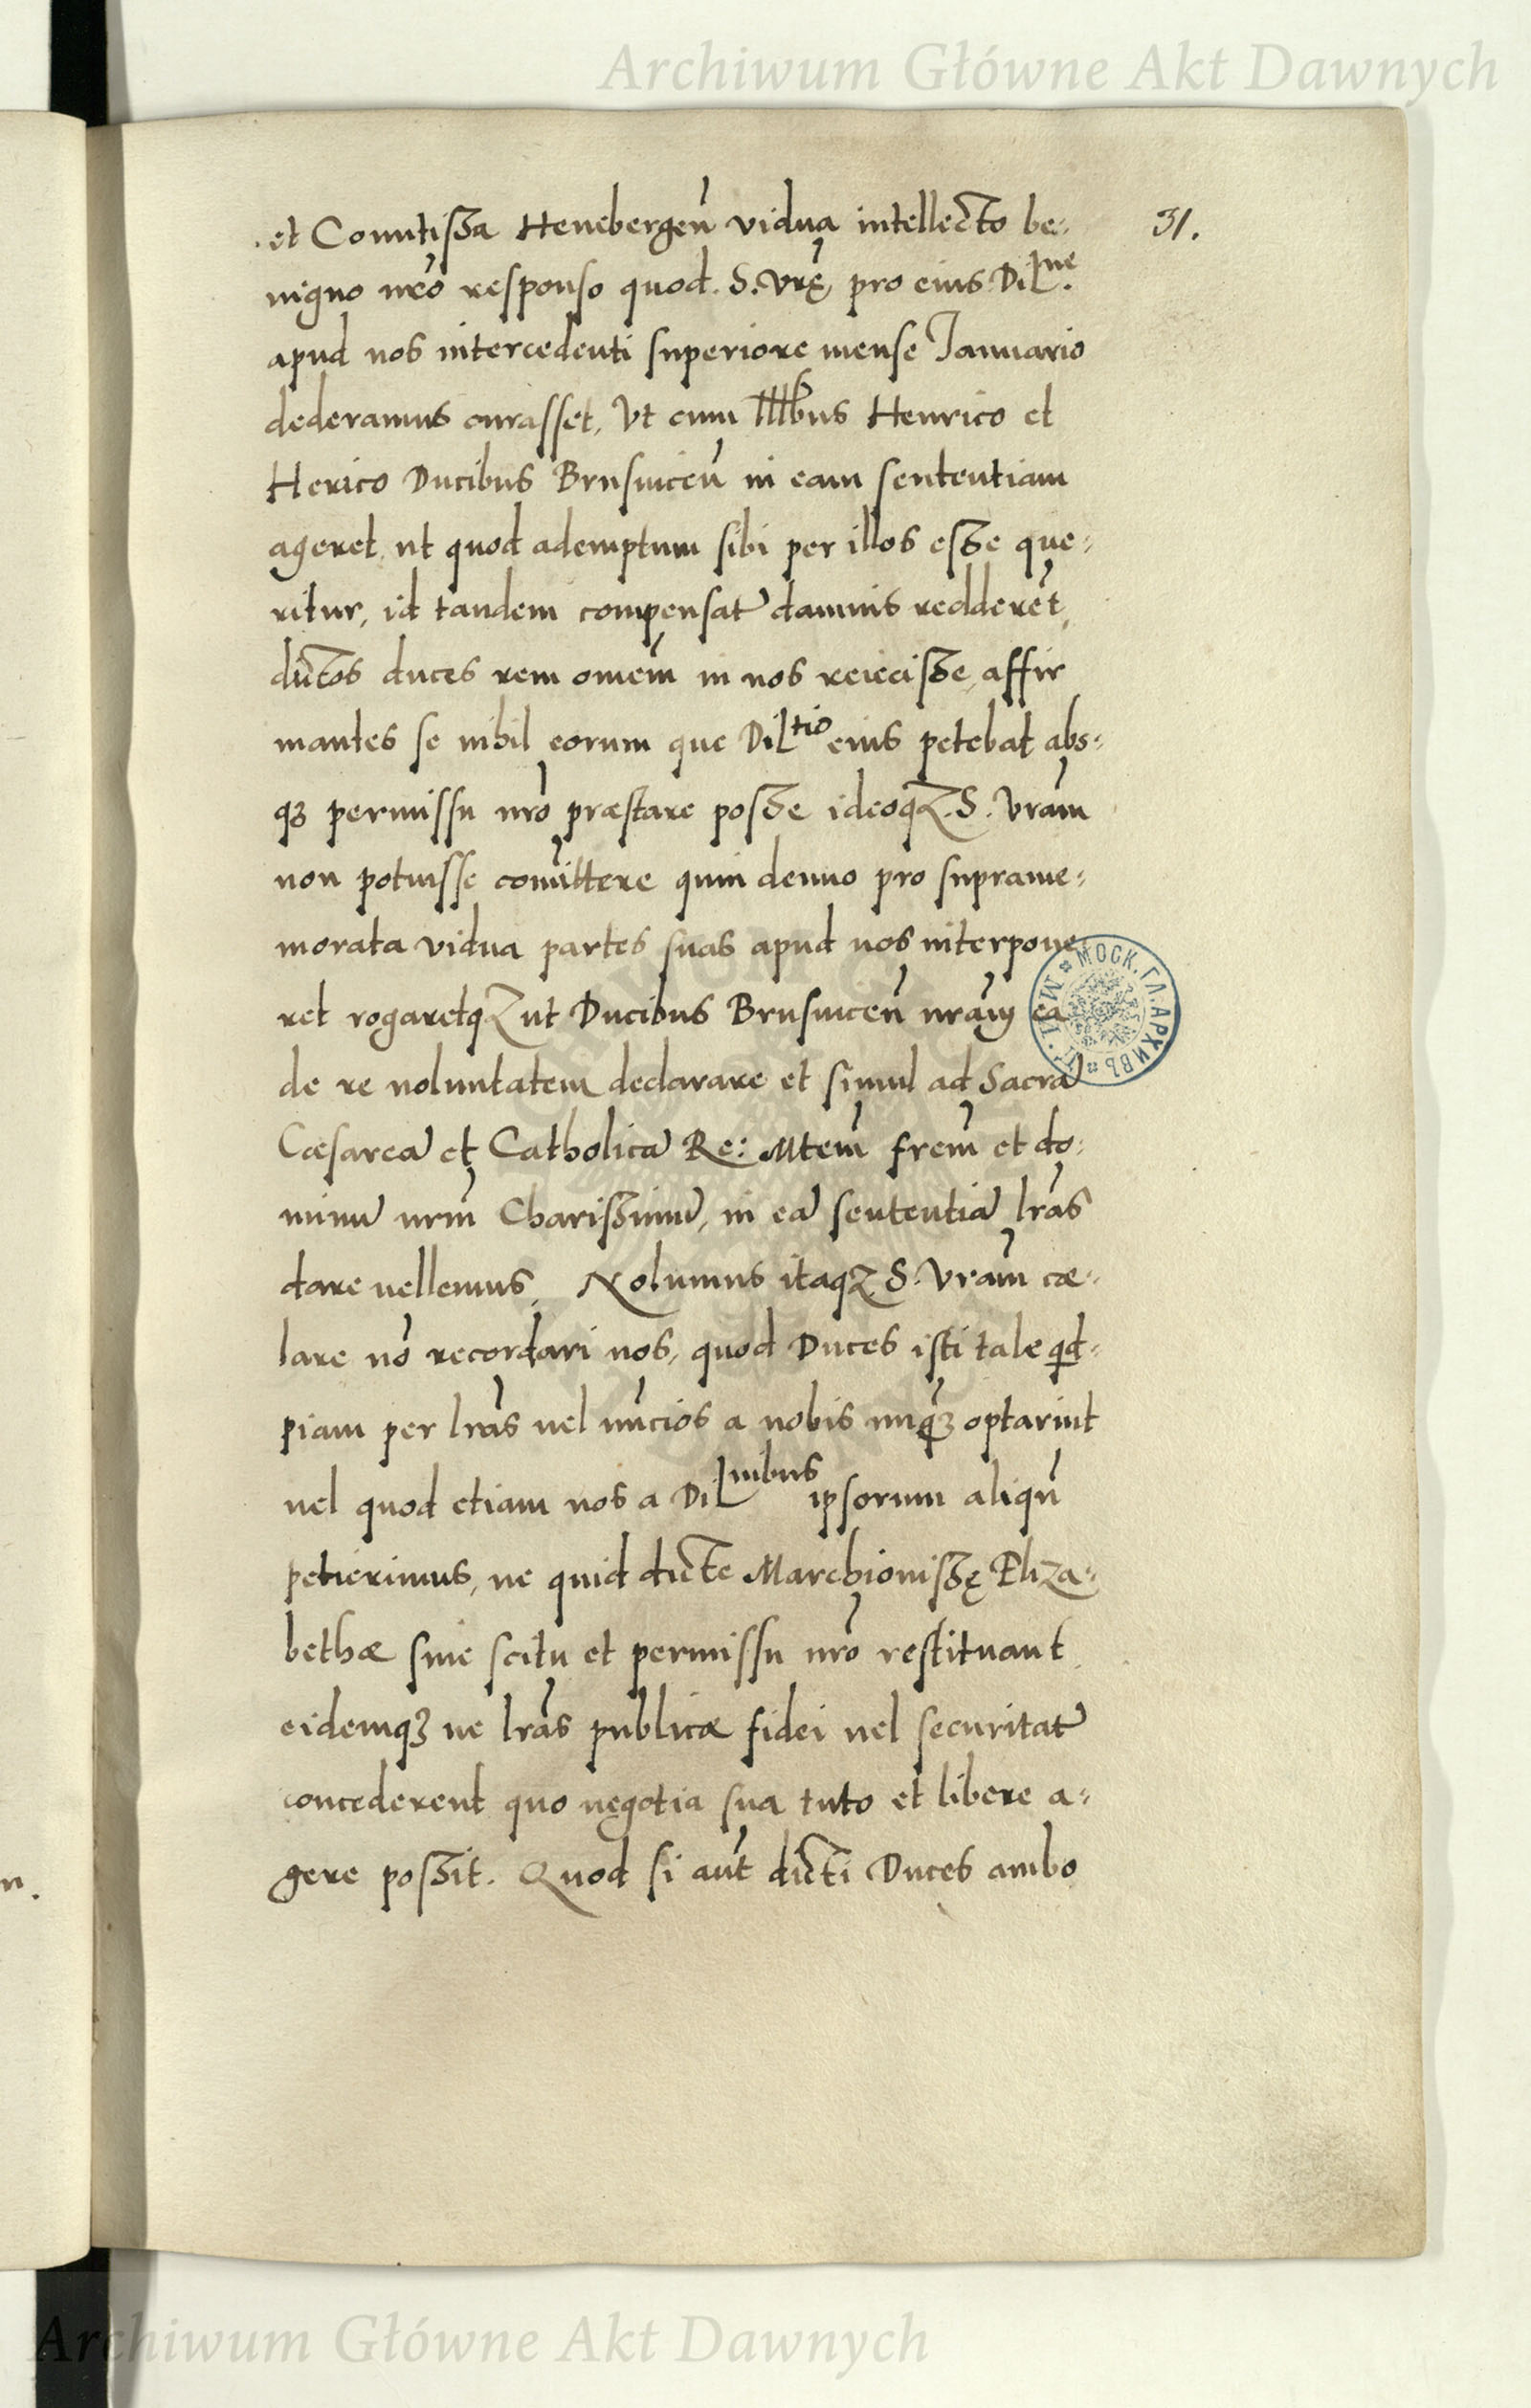 Archiwum Główne Akt Dawnych
31.
et Comitissa Henebergeñ vidua intellecto be-
nigno nr̃o responso quod S. Vrę pro eius Dil.ne
apud nos intercedenti superiore mense Ianuario
dederamus curasset, Vt cum Illbus Henrico et
Herico Ducibus Brusuiceñ in eam sententiam
ageret ut quod ademptum sibi per illos esse que-
ritur, id tandem compensat damnis redderẽt,
dictos duces rem omem̃ in nos reiecisse, affir
mantes se nihil eorum que Diltio eius petebat abs-
qз permissu nr̃o præstare posse ideoqз S. Vram̃
non potuisse com̃ittere quin denuo pro suprame-
morata vidua partes suas apud nos interpone
ret rogaretqз ut Ducibus Brusuiceñ nram̃ ea
de re uoluntatem declarare et simul ad Sacrã
Cæsareã et Catholicã Re: Mtem̃ frem̃ et do-
minũ nrm̃ Charissimũ, in eã sententiã lr̃as
dare uellemus. Nolumus itaqз S. Vram̃ cæ-
lare nõ recordari nos, quod Duces isti tale qd-
piam per lr̃as uel nũcios a nobis unqз optarint
uel quod etiam nos a Dilnibus ipsorum aliqñ
petierimus, ne quid dicte Marchionissę Eliza-
bethæ sine scitu et permissu nr̃o restituant
eidemqз ne lr̃as publicæ fidei uel securitat
concederent quo negotia sua tuto et libere a-
gere possit. Quod si aut̃ dicti Duces ambo
МОСК. ГЛ. АРХИВЪ
n.
Archiwum Główne Akt Dawnych